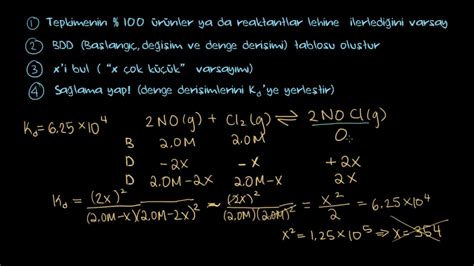 ① Tepkimenin %100 ürünler ya da reaktantlar lehine ilerlediğini varsay
② BDD (Başlangıç, değişim ve denge derişimi) tablosu oluştur
③ x'i bul ("x çok küçük" varsayımı)
④ Sağlama yap! (denge derişimlerini K_d'ye yerleştir)
K_d = 6.25 × 10⁴
2NO(g) + Cl₂(g) ⇌ 2NOCl(g)
B 2.0M 2.0M 0
D -2x -x +2x
D 2.0M-2x 2.0M-x 2x
K_d = (2x)² / (2.0M-x)(2.0M-2x)² ~ (2x)² / (2.0M)(2.0M)² = x² / 2 = 6.25 × 10⁴
x² = 1.25 × 10⁵ ⇒ x = 354